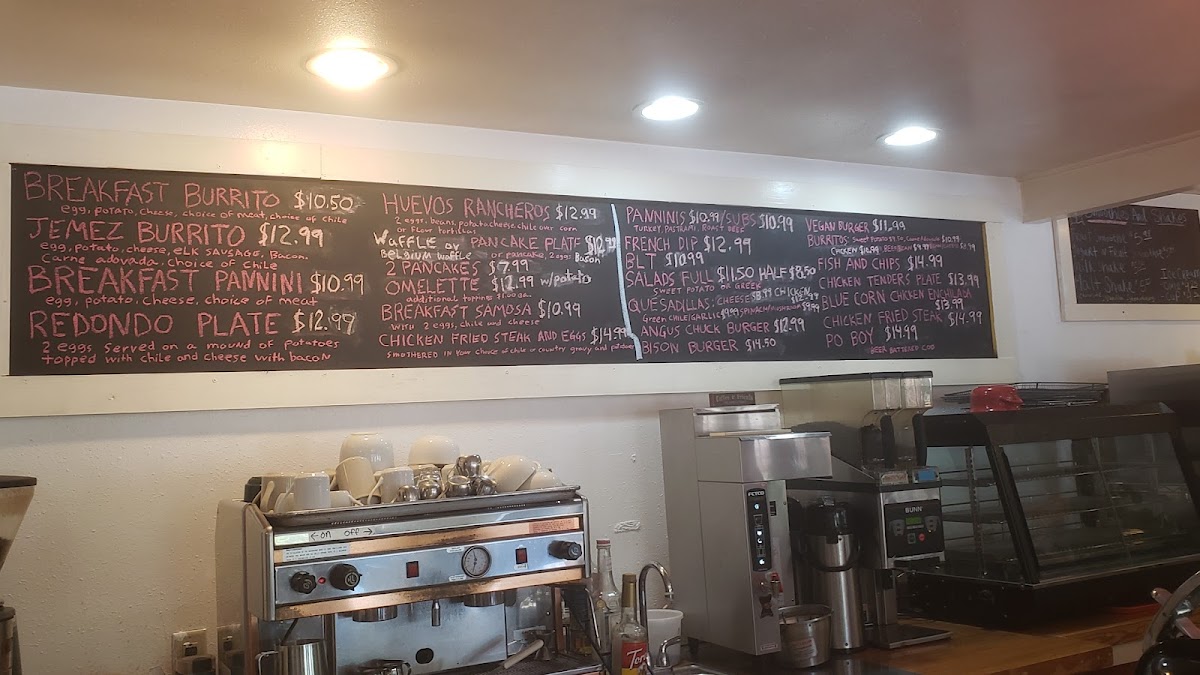 BREAKFAST BURRITO $10.50
egg, potato, cheese, choice of meat, choice of chile
JEMEZ BURRITO $12.99
egg, potato, cheese, ELK SAUSAGE, Bacon,
Carne adovada, choice of Chile
BREAKFAST PANNINI $10.99
egg, potato, cheese, choice of meat
REDONDO PLATE $12.99
2 eggs served on a mound of potatoes
topped with chile and cheese with bacon
HUEVOS RANCHEROS $12.99
2 eggs, beans, potato, cheese, chile over corn
or flour tortillas
WAFFLE or PANCAKE PLATE
BELGIUM Waffle or pancake, 2 eggs Bacon
2 PANCAKES $7.99
OMELETTE $12.99 w/potato
additional topping $1.00 ea.
BREAKFAST SAMOSA $10.99
with 2 eggs, chile and cheese
CHICKEN FRIED STEAK AND EGGS $14.99
SMOTHERED IN your choice of chile or country gravy and potatoes
PANNINIS $10.99/SUBS $10.99
TURKEY, PASTRAMI, ROAST BEEF
FRENCH DIP $12.99
BLT $10.99
SALADS FULL $11.50 HALF $8.50
SWEET POTATO OR GREEK
QUESADILLAS: CHEESE $8.99 CHICKEN
GREEN CHILE/GARLIC $9.99 SPINACH/MUSHROOM $9.99
ANGUS CHUCK BURGER $12.99
BISON BURGER $14.50
VEGAN BURGER $11.99
BURRITOS: Sweet Potato $9.50, Carne Adovada $10.99
CHICKEN $10.99
FISH AND CHIPS $14.99
CHICKEN TENDERS PLATE $13.99
BLUE CORN CHICKEN ENCHILADA
$13.99
CHICKEN FRIED STEAK $14.99
PO BOY $14.99
BEER BATTERED COD
And Shakes
← on off →
FETCO
BUNN
Tor